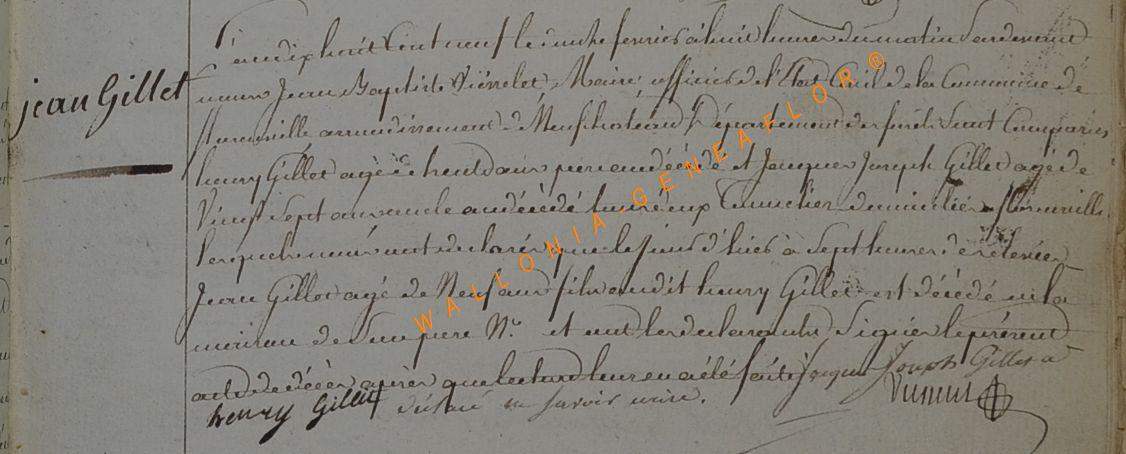 jean Gillet
L'an dix huit cent neuf le onze fevrier à huit heures du matin Pardevant
nous Jean Baptiste Maire officier de l'Etat Civil de la Commune de
florenville arrondissement de Neufchateau Département des forets sont Comparus
henry Gillet agé de trente ans père au décédé et Jacques Joseph Gillet agé de
vingt sept ans oncle au décédé tous deux domiciliés a florenville
lesquels nous ont declaré que le jour d'hier à sept heures de relevée
Jean Gillet agé de Neuf ans fils audit henry Gillet est décédé en la
maison de son pere N.º et ont les declarants Signés le présent
acte de décès après que lecture leur en a été faite jacque Joseph Gillet a
henry Gillet déclaré ne savoir
WALLONIA-GENEAFLOR®